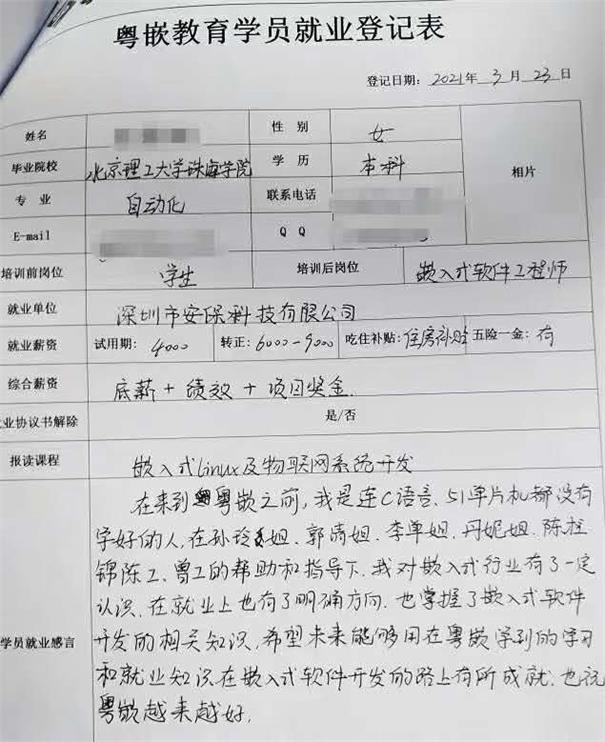 粤嵌教育学员就业登记表
登记日期: 2021年 3月 23日
姓名 性 别 女 相片
毕业院校 北京理工大学珠海学院 学 历 本科
专 业 自动化 联系电话
E-mail Q Q
培训前岗位 学生 培训后岗位 嵌入式软件工程师
就业单位 深圳市安保科技有限公司
就业薪资 试用期: 4000 转正: 6000-9000 吃住补贴: 住房补贴 五险一金: 有
综合薪资 底薪+绩效+项目奖金.
业协议书解除 是/否
报读课程 嵌入式Linux及物联网系统开发
在来到粤嵌之前,我是连C语言、51单片机都没有
学好的人,在孙玲姐、郭清姐、李单姐、丹妮姐、陈柱
锦陈工、曾工的帮助和指导下,我对嵌入式行业有了一定
认识,在就业上也有了明确方向,也掌握了嵌入式软件
学员就业感言 开发的相关知识,希望未来能够用在粤嵌学到的学习
和就业知识在嵌入式软件开发的路上有所成就,也祝
粤嵌越来越好.